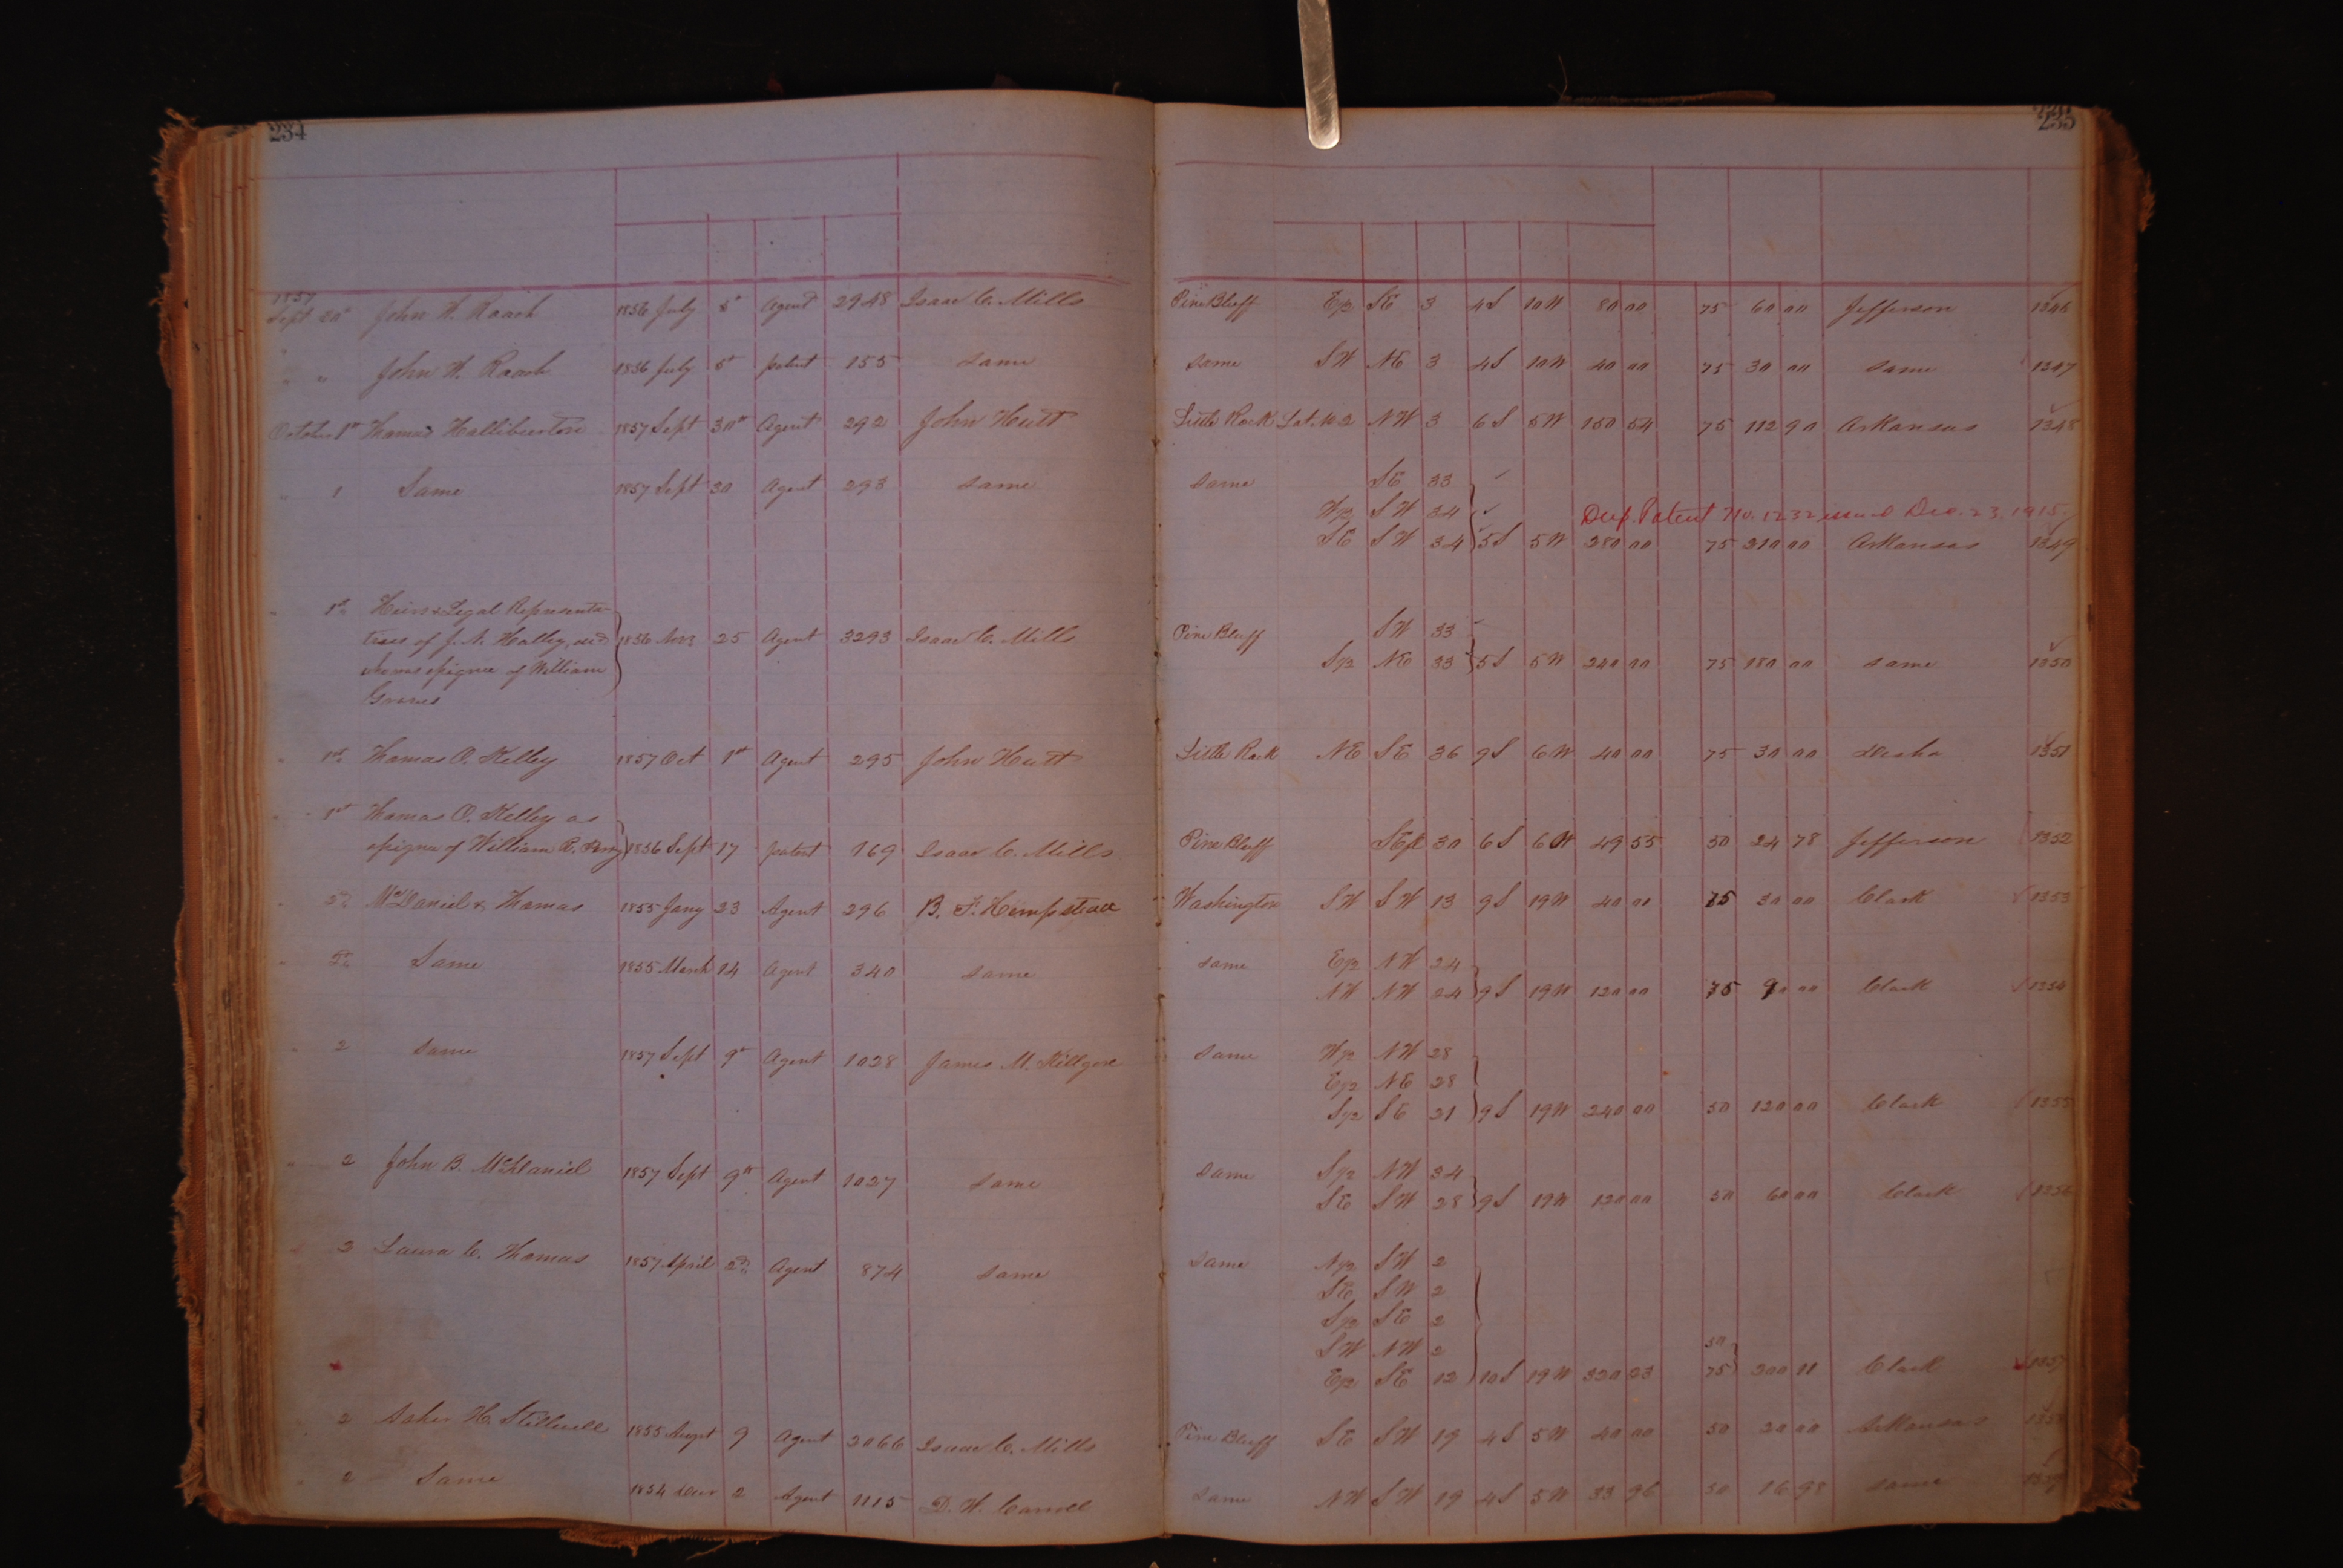 234 235
1857
Sept 30" John W. Roach 1856 July 5" Agent 2948 Isaac C. Mills Pine Bluff E/2 SE 3 4S 10W 80 00 75 60 00 Jefferson 1346
" " John W. Roach 1856 July 5" patent 155 same same SW NE 3 4S 10W 40 00 75 30 00 same 1347
October 1st Thomas Halliburton 1857 Sept 30th Agent 292 John Hutt Little Rock Lot No 2 NW 3 6S 5W 150 54 75 112 90 Arkansas 1348
" 1 Same 1857 Sept 30 Agent 293 same same SE 33
W/2 SW 34 Dup. Patent No. 1232 issued Dec. 23, 1915
SE SW 34 5S 5W 280 00 75 210 00 Arkansas 1349
" 1st Heirs & Legal Representa-
tives of J. N. Halley, decd 1856 Nov 25 Agent 3293 Isaac C. Mills Pine Bluff SW 33
who was assignee of William S/2 NE 33 5S 5W 240 00 75 180 00 same 1350
Graves
" 1st Thomas O. Kelley 1857 Oct 1st Agent 295 John Hutt Little Rock NE SE 36 9S 6W 40 00 75 30 00 Desha 1351
" 1st Thomas O. Kelley as
assignee of William R. Perry 1856 Sept 17 patent 169 Isaac C. Mills Pine Bluff 30 6S 6W 49 55 50 24 78 Jefferson 1352
" 2d McDaniel & Thomas 1855 Jany 23 Agent 296 B. F. Hempstead Washington SW SW 13 9S 19W 40 00 75 30 00 Clark 1353
" 2d Same 1855 March 14 Agent 340 same same E/2 NW 24
NW NW 24 9S 19W 120 00 75 90 00 Clark 1354
" 2 same 1857 Sept 9" Agent 1028 James M. Killgore same W/2 NW 28
E/2 NE 28
S/2 SE 21 9S 19W 240 00 50 120 00 Clark 1355
" 2 John B. McDaniel 1857 Sept 9th Agent 1027 same same S/2 NW 34
SE SW 28 9S 19W 120 00 50 60 00 Clark 1356
2 Laura C. Thomas 1857 April 2d Agent 874 same same N/2 SW 2
SE SW 2
S/2 SE 2
SW NW 2 50
E/2 SE 12 10S 19W 320 23 75 200 11 Clark 1357
2 Asher H. Stillwell 1855 Augst 9 Agent 2066 Isaac C. Mills Pine Bluff SE SW 19 4S 5W 40 00 50 20 00 Arkansas 1358
" 2 Same 1854 Decr 2 Agent 1115 D. W. Carroll same NW SW 19 4S 5W 33 96 50 16 98 same 1359